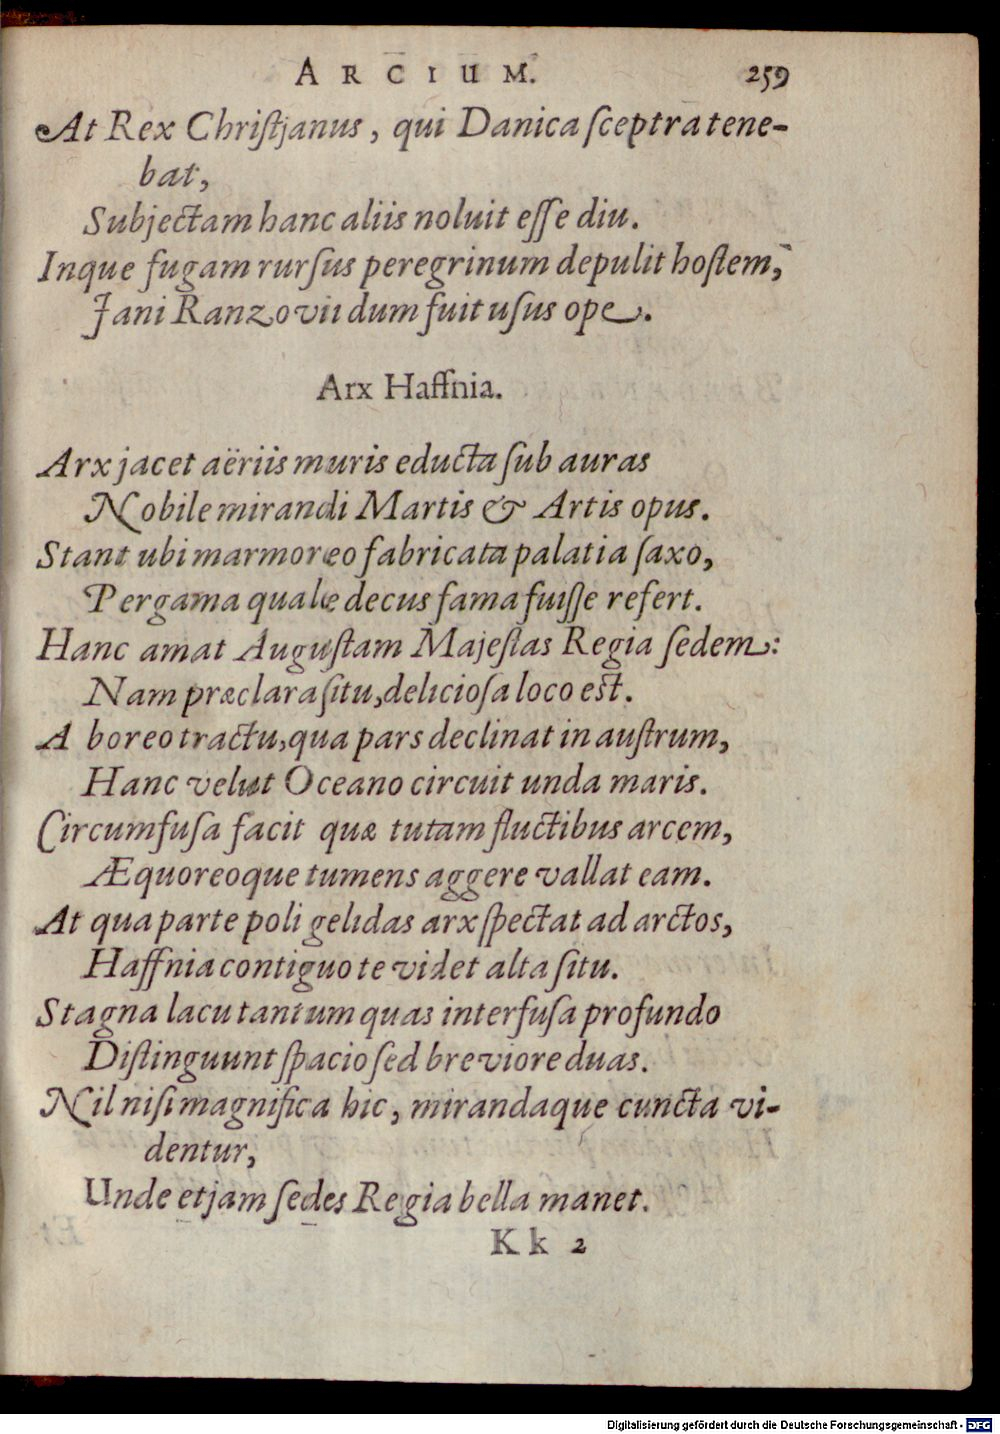 ARCIUM. 259
At Rex Chriſtjanus, qui Danica ſceptra tene-
bat,
Subjectam hanc aliis noluit eſſe diu.
Inque fugam rurſus peregrinum depulit hoſtem,
Jani Ranzovii dum fuit uſus ope.
Arx Haffnia.
Arx jacet aëriis muris educta ſub auras
Nobile mirandi Martis & Artis opus.
Stant ubi marmoreo fabricata palatia ſaxo,
Pergama quale decus fama fuiſſe refert.
Hanc amat Auguſtam Majeſtas Regia ſedem:
Nam præclara ſitu, delicioſa loco est.
A boreo tractu, qua pars declinat in auſtrum,
Hanc velut Oceano circuit unda maris.
Circumfuſa facit quæ tutam fluctibus arcem,
Æquoreoque tumens aggere vallat eam.
At qua parte poli gelidas arx ſpectat ad arctos,
Haffnia contiguo te videt alta ſitu.
Stagna lacu tantum quas interfuſa profundo
Diſtinguunt ſpacio ſed breviore duas.
Nil niſi magnifica hic, mirandaque cuncta vi-
dentur,
Unde etjam ſedes Regia bella manet.
Kk 2
Digitalisierung gefördert durch die Deutsche Forschungsgemeinschaft - DFG